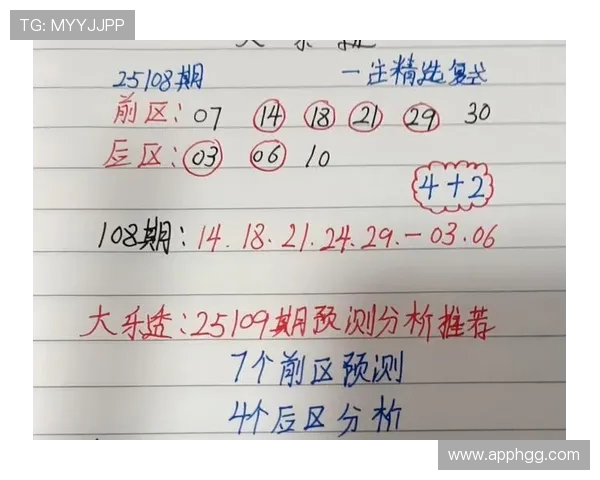 TG: MYYJJPP
大乐透
25108期 一注精选复式
前区: 07 14 18 21 29 30
后区: 03 06 10
4+2
108期: 14.18.21.24.29.-03.06
大乐透:25109期预测分析推荐
7个前区预测
4个后区分析
www.apphgg.com